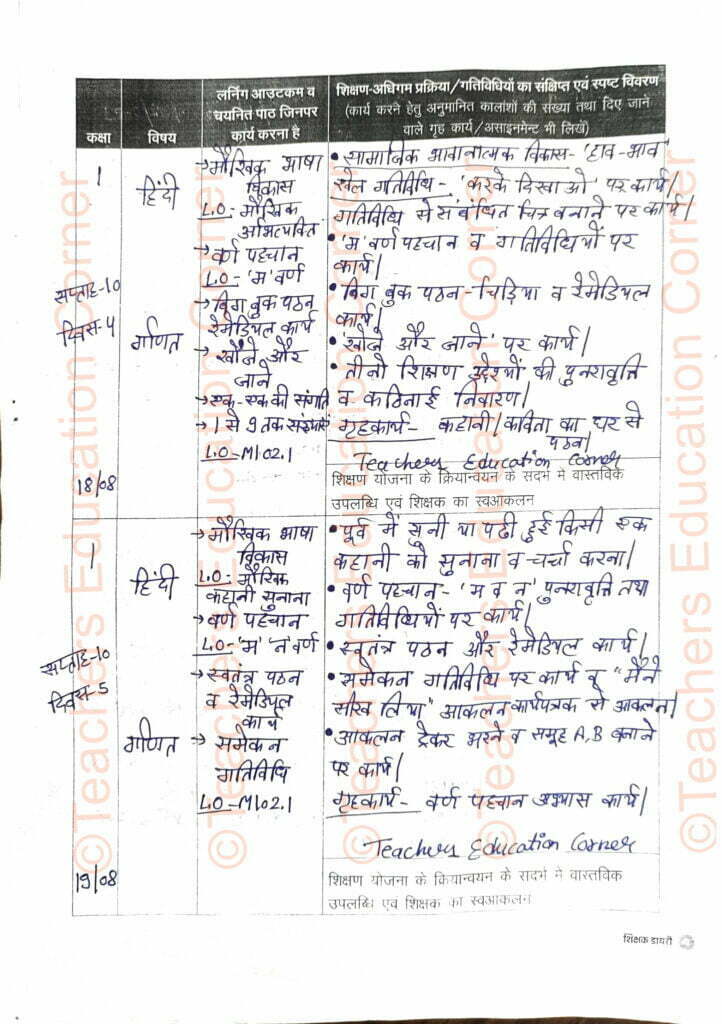 कक्षा
विषय
लर्निंग आउटकम व
चयनित पाठ जिनपर
कार्य करना है
शिक्षण-अधिगम प्रक्रिया/गतिविधियों का संक्षिप्त एवं स्पष्ट विवरण
(कार्य करने हेतु अनुमानित कालांशों की संख्या तथा दिए जाने
वाले गृह कार्य/असाइनमेन्ट भी लिखें)
1
सप्ताह-10
दिवस-4
18/08
हिंदी
गणित
→मौखिक भाषा
विकास
L.O- मौखिक
अभिव्यक्ति
→ वर्ण पहचान
L.O- 'म' वर्ण
→ बिग बुक पठन
रेमेडियल कार्य
→ खोजें और
जाने
→ एक-एक की संगति
→ 1 से 9 तक संख्याएं
L.O-M102.1
• सामाजिक भावानात्मक विकास- 'हाव-भाव'
खेल गतिविधि- 'करके दिखाओ' पर कार्य|
गतिविधि से संबंधित चित्र बनाने पर कार्य|
• 'म' वर्ण पहचान व गतिविधियों पर
कार्य|
• बिग बुक पठन-चिड़िया व रेमेडियल
कार्य|
• 'खोजे और जाने' पर कार्य|
• तीनो शिक्षण उद्देश्यों की पुनरावृत्ति
व कठिनाई निवारण|
गृहकार्य- कहानी/कविता का घर से
पठन|
Teachers Education Corner
शिक्षण योजना के क्रियान्वयन के सदर्भ मे वास्तविक
उपलब्धि एवं शिक्षक का स्वआकलन
1
सप्ताह-10
दिवस-5
19/08
हिंदी
गणित
→मौखिक भाषा
विकास
L.O- मौखिक
कहानी सुनाना
→वर्ण पहचान
L.O-'म' 'न' वर्ण
→स्वतंत्र पठन
व रेमेडियल
कार्य
→ समेकन
गतिविधि
L.O-M102.1
• पूर्व में सुनी या पढी हुई किसी एक
कहानी को सुनाना व चर्चा करना|
• वर्ण पहचान- 'म व न' पुनरावृत्ति तथा
गतिविधियों पर कार्य|
• स्वतंत्र पठन और रेमेडियल कार्य|
• समेकन गतिविधि पर कार्य व "मैने
सीख लिया" आकलन कार्यपत्रक से आकलन|
• आकलन ट्रेकर भरने व समूह A,B बनाने
पर कार्य|
गृहकार्य- वर्ण पहचान अभ्यास कार्य|
Teachers Education Corner
शिक्षण योजना के क्रियान्वयन के सदर्भ मे वास्तविक
उपलब्धि एवं शिक्षक का स्वआकलन
शिक्षक डायरी
©Teachers Education Corner
©Teachers Education Corner
©Teachers Education Corner
©Teachers Education Corner
©Teachers Education Corner